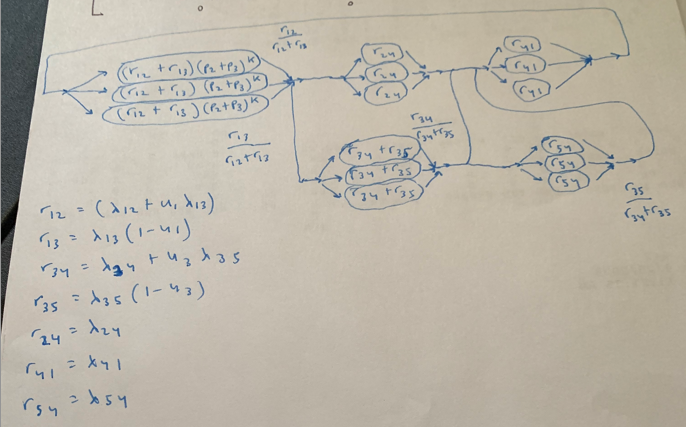 r12
r12+r13
(r12 + r13)(p2+p3)^k
(r12 + r13)(p2+p3)^k
(r12 + r13)(p2+p3)^k
r24
r24
r24
r41
r41
r41
r13
r12+r13
r34
r34+r35
r34+r35
r34+r35
r34+r35
r54
r54
r54
r35
r34+r35
r12 = (λ12 + u1 λ13)
r13 = λ13 (1-u1)
r34 = λ34 + u3 λ35
r35 = λ35 (1-u3)
r24 = λ24
r41 = λ41
r54 = λ54